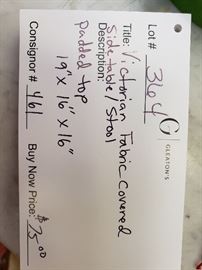 Lot # 364
G
GLEATON'S
Title: Victorian Fabric Covered
Side table/Stool
Description:
padded top
19" x 16" x 16"
Consignor # 461
Buy Now Price: $75.00